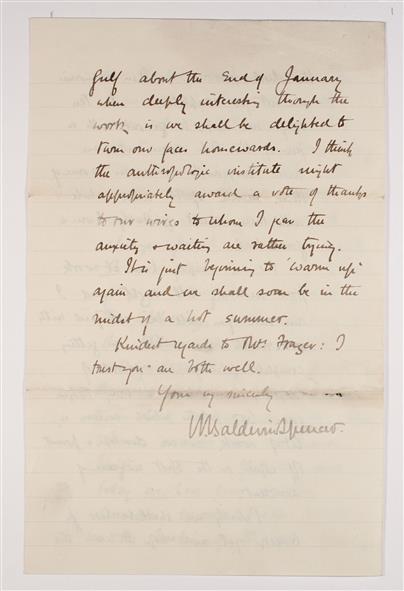 Gulf about the end of January
when deeply interesting though the
work is we shall be delighted to
turn our faces homewards. I think
the anthropologic institute might
appropriately award a vote of thanks
to our wives to whom I fear the
anxiety & waiting are rather trying.
It is just beginning to "warm up"
again and we shall soon be in the
midst of a hot summer.
Kindest regards to Mrs Frazer: I
trust you are both well.
Yours very sincerely
W. Baldwin Spencer.